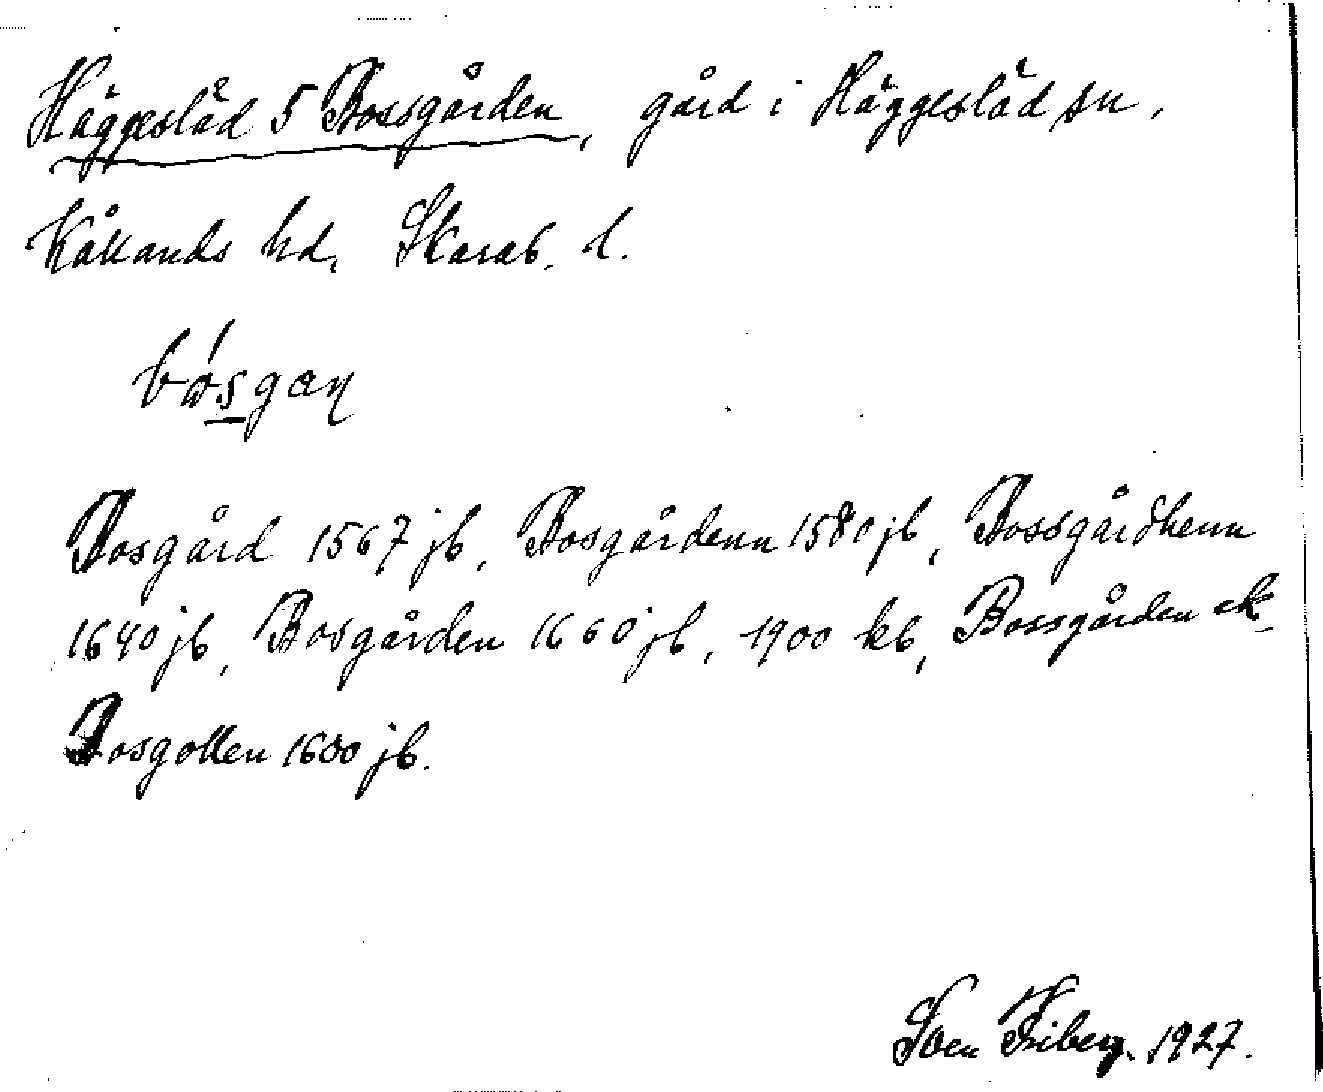 Häggesläd 5 Bossgården, gård i Häggesläd sn,
Kållands hd, Skarab. l.
Bosgård 1567 jb, Bosgårdenn 1580 jb, Bossgårdhenn
1640 jb, Bosgården 1660 jb, 1900 kb, Bossgården ek
Bosgollen 1600 jb.
Sven Friberg. 1927.